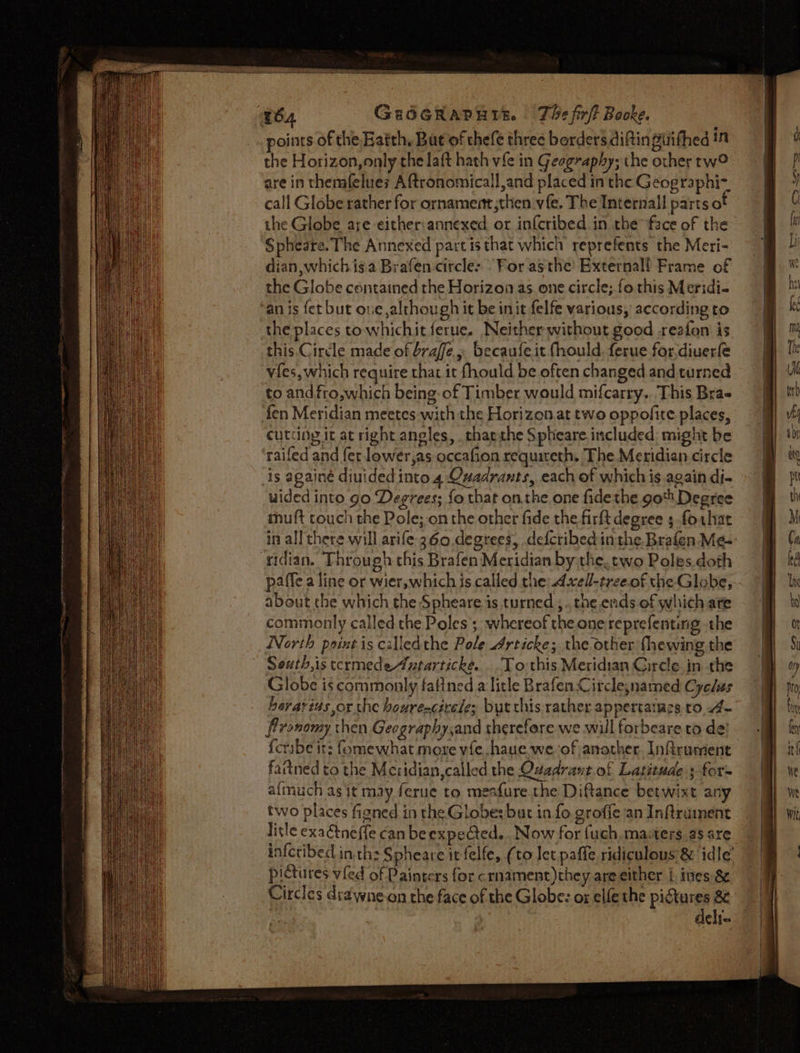 164 GEOGRAPHIE. The first Booke.
points of the Earth. But of these three borders distinguished in
the Horizon, only the last hath vse in Geography; the other two
are in themselues Astronomicall, and placed in the Geographi-
call Globe rather for ornament, then vse. The Internall parts of
the Globe are either annexed or inscribed in the face of the
Spheare. The Annexed part is that which represents the Meri-
dian, which is a Brasen circle: For as the Externall Frame of
the Globe contained the Horizon as one circle; so this Meridi-
an is set but one, although it be in it selfe various, according to
the places to which it serue. Neither without good reason is
this Circle made of brasse, because it should serue for diuerse
vses, which require that it should be often changed and turned
to and fro, which being of Timber would miscarry. This Bra-
sen Meridian meetes with the Horizon at two opposite places,
cutting it at right angles, that the Spheare included might be
raised and set lower, as occasion requireth. The Meridian circle
is againe diuided into 4 Quadrants, each of which is again di-
uided into 90 Degrees; so that on the one side the 90th Degree
must touch the Pole; on the other side the first degree; so that
in all there will arise 360 degrees, described in the Brasen Me-
ridian. Through this Brasen Meridian by the two Poles doth
passe a line or wier, which is called the Axell-tree of the Globe,
about the which the Spheare is turned, the ends of which are
commonly called the Poles; whereof the one representing the
North point is called the Pole Articke; the other shewing the
South, is termed Antarticke. To this Meridian Circle in the
Globe is commonly fastned a litle Brasen Circle, named Cyclus
horarius, or the houre-circle; but this rather appertaines to A-
stronomy then Geography, and therefore we will forbeare to de
scribe it: somewhat more vse haue we of another Instrument
fastned to the Meridian, called the Quadrant of Latitude; for-
asmuch as it may serue to measure the Distance betwixt any
two places signed in the Globe: but in so grosse an Instrument
litle exactnesse can be expected. Now for such matters as are
inscribed in the Spheare it selfe, (to let passe ridiculous & idle
pictures vsed of Painters for ornament) they are either Lines &
Circles drawne on the face of the Globe: or else the pictures &
deli-